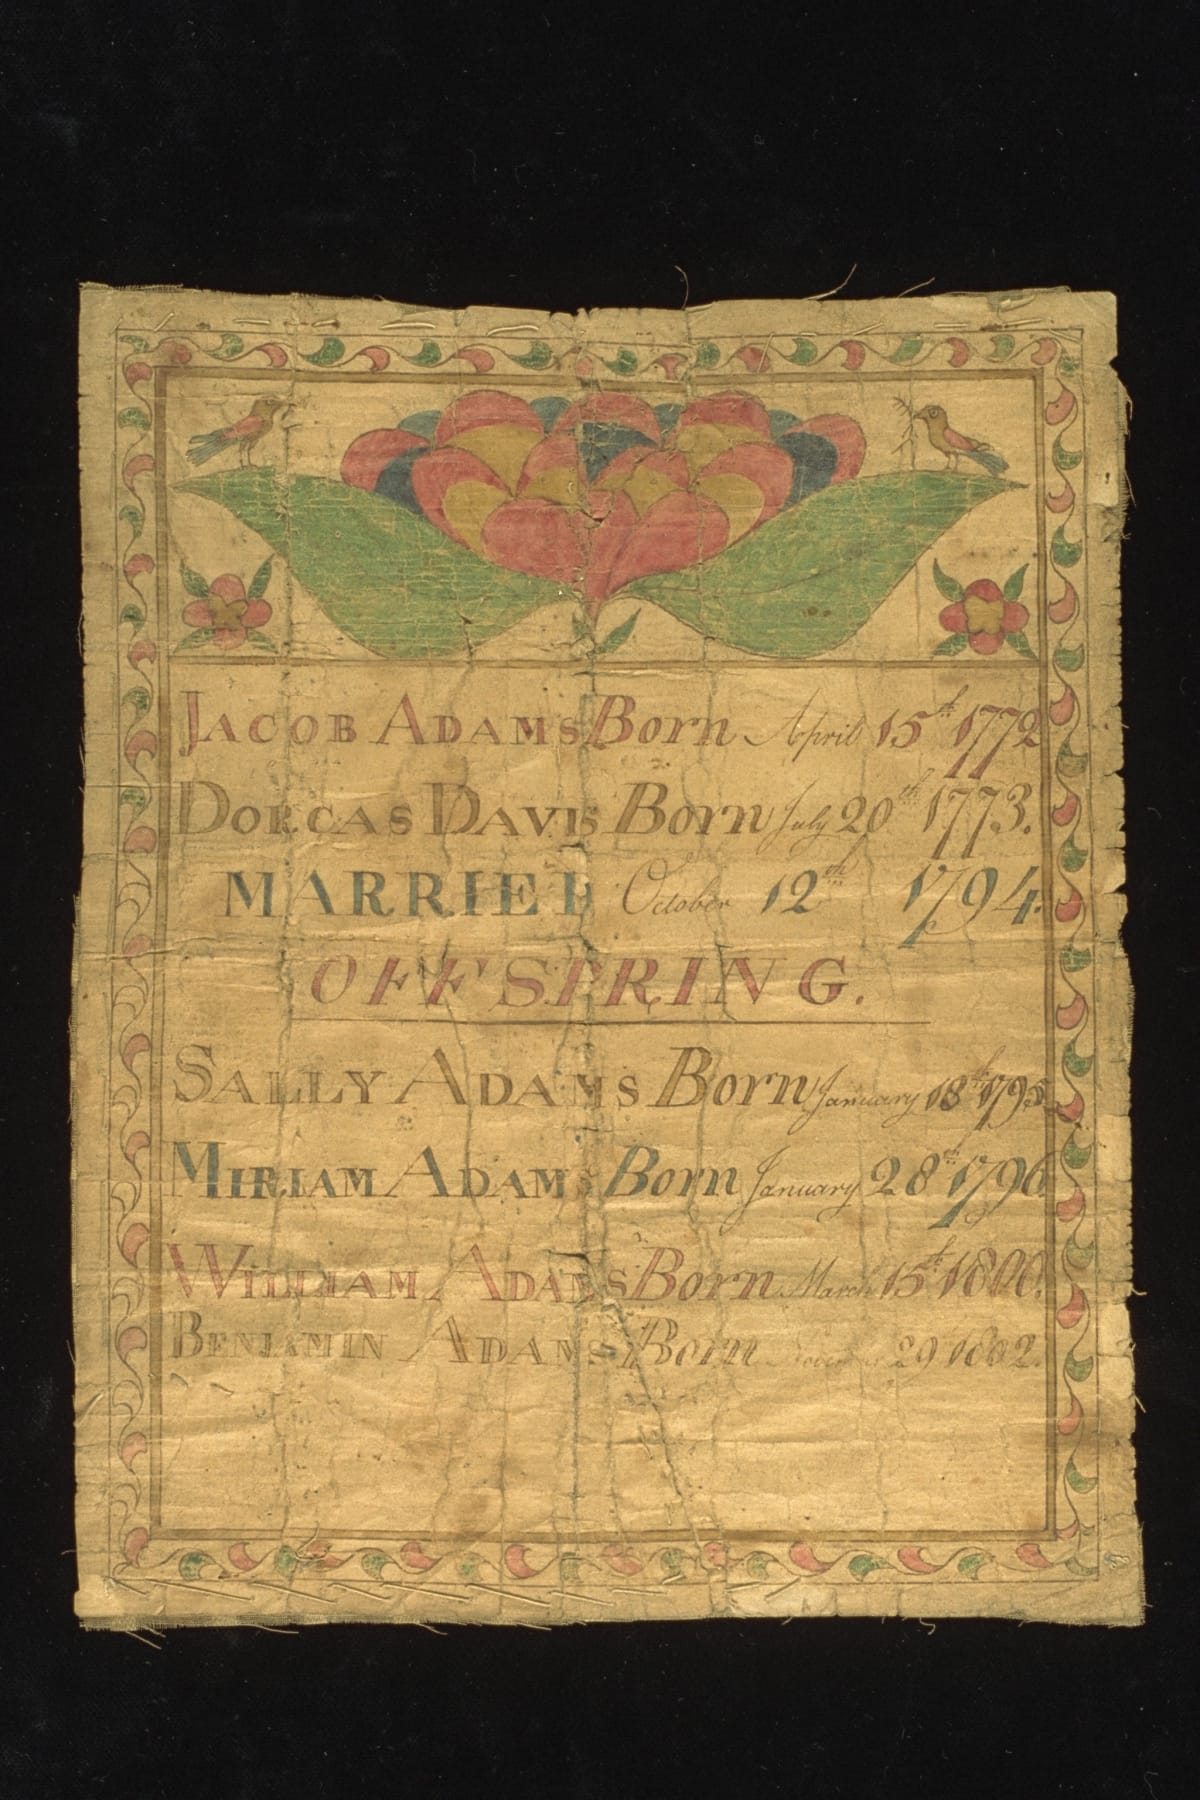 JACOB ADAMS Born April 15th 1772
DORCAS DAVIS Born July 20th 1773.
MARRIED October 12th 1794.
OFFSPRING.
SALLY ADAMS Born January 18th 1795
MIRIAM ADAMS Born January 28th 1796
WILLIAM ADAMS Born March 15th 1800.
BENJAMIN ADAMS Born 29 1802.